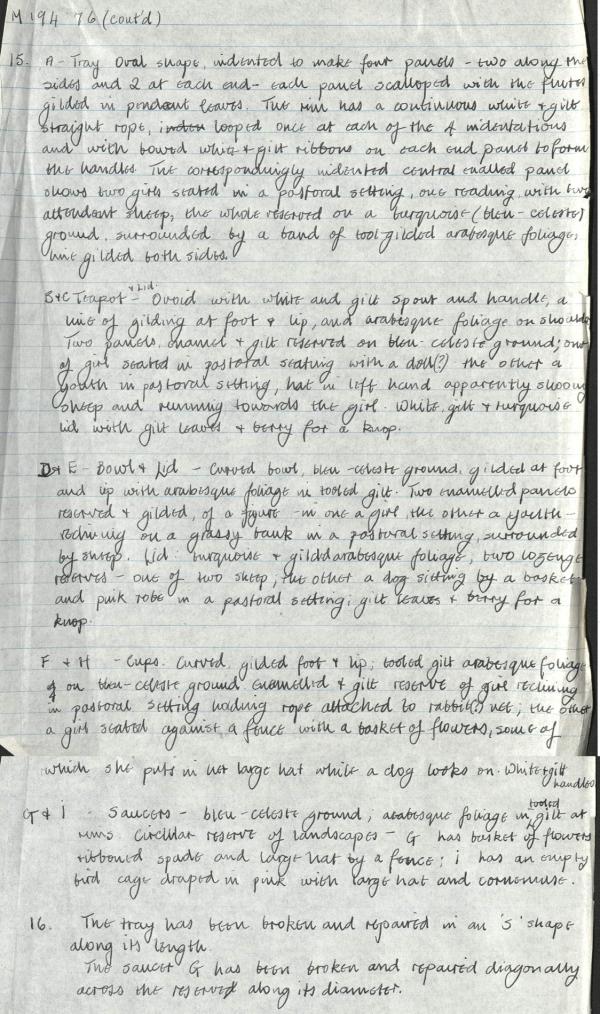 M 194 76 (cont'd)
15. A - Tray Oval shape, indented to make four panels - two along the
sides and 2 at each end - each panel scalloped with the flutes
gilded in pendant leaves. The rim has a continuous white & gilt
straight rope, inden looped once at each of the 4 indentations
and with bowed white & gilt ribbons on each end panel to form
the handles. The correspondingly indented central enalled panel
shows two girls seated in a pastoral setting, one reading, with two
attendant sheep, the whole reserved on a turquoise (bleu-celeste)
ground, surrounded by a band of tool-gilded arabesque foliage,
line gilded both sides.
B & C Teapot & Lid - Ovoid with white and gilt spout and handle, a
line of gilding at foot & lip, and arabesque foliage on shoulder
Two panels, enamel & gilt reserved on bleu-celeste ground; one
of girl seated in pastoral seating with a doll(?) the other a
youth in pastoral setting, hat in left hand apparently shooing
sheep and running towards the girl. White, gilt & turquoise
lid with gilt leaves & berry for a knop.
D & E - Bowl & Lid - Curved bowl, bleu-celeste ground, gilded at foot
and lip with arabesque foliage in tooled gilt. Two enamelled panels
reserved & gilded, of a figure - in one a girl, the other a youth -
reclining on a grassy bank in a pastoral setting, surrounded
by sheep. Lid: turquoise & gilded arabesque foliage, two lozenge
reserves - one of two sheep, the other a dog sitting by a basket
and pink robe in a pastoral setting; gilt leaves & berry for a
knop.
F & H - Cups. Curved, gilded foot & lip; tooled gilt arabesque foliage
on bleu-celeste ground. Enamelled & gilt reserve of girl reclining
in pastoral setting holding rope attached to rabbit(?) net; the other
a girl seated against a fence with a basket of flowers, some of
which she puts in her large hat while a dog looks on. White & gilt
handles
G & I - Saucers - bleu-celeste ground; arabesque foliage in tooled gilt at
rims. Circular reserve of landscapes - G has basket of flowers
ribboned spade and large hat by a fence; I has an empty
bird cage draped in pink with large hat and cornemuse.
16. The tray has been broken and repaired in an 'S' shape
along its length.
The saucer G has been broken and repaired diagonally
across the reserved along its diameter.